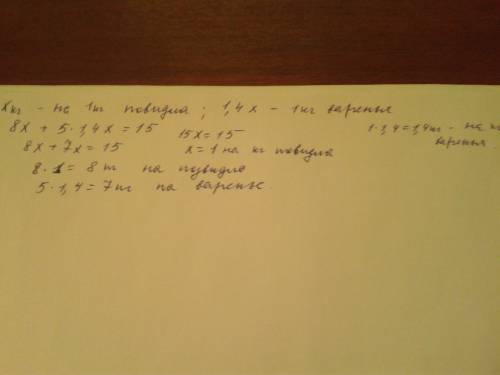 x кг - на 1 кг повидла ; 1,4x - 1 кг варенья
8x + 5·1,4x = 15
8x + 7x = 15
15x = 15
x = 1 на кг повидла
1·1,4 = 1,4 кг - на
варенья.
8·1 = 8 кг на повидло
5·1,4 = 7 кг на варенье.